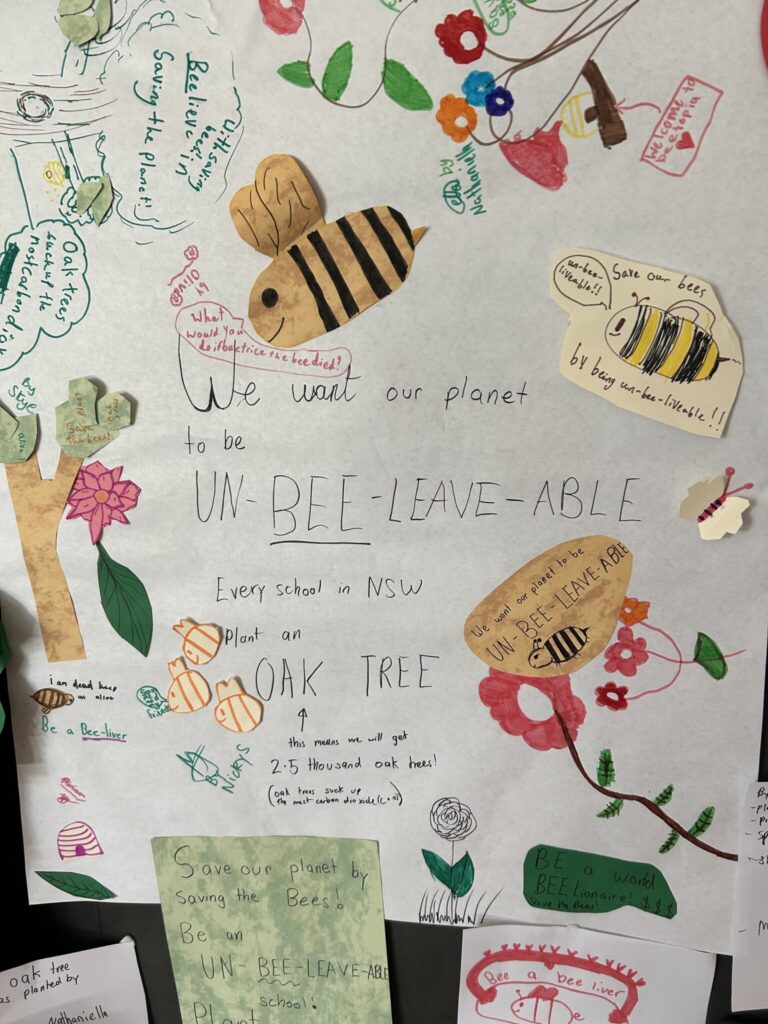 With saving
bees,
Beelieve in
Saving the planet!
Oak trees
suck up the
most carbon diox
etta by
Nathaniella
Welcome to
beetopia
by
Olivia
What
would you
do if beetrice the bee died?
un-bee-
liveable!!
Save our bees
by being un-bee-liveable!!
We want our planet
to be
UN-BEE-LEAVE-ABLE
Every school in NSW
Plant an
OAK TREE
this means we will get
2.5 thousand oak trees!
(oak trees suck up
the most carbon dioxide
By
Skye
Save
the bees!
We want our planet to be
UN-BEE-LEAVE-ABLE
i am dead keep
us alive
Be a Bee-liver
By
Nickys
BE a world
BEElionaire! $$$
Save the Bees!
Save our planet by
Saving the Bees!
Be an
UN-BEE-LEAVE-ABLE
school!
Plant
Bee a bee liver
oak tree
as planted by
Nathaniella
By